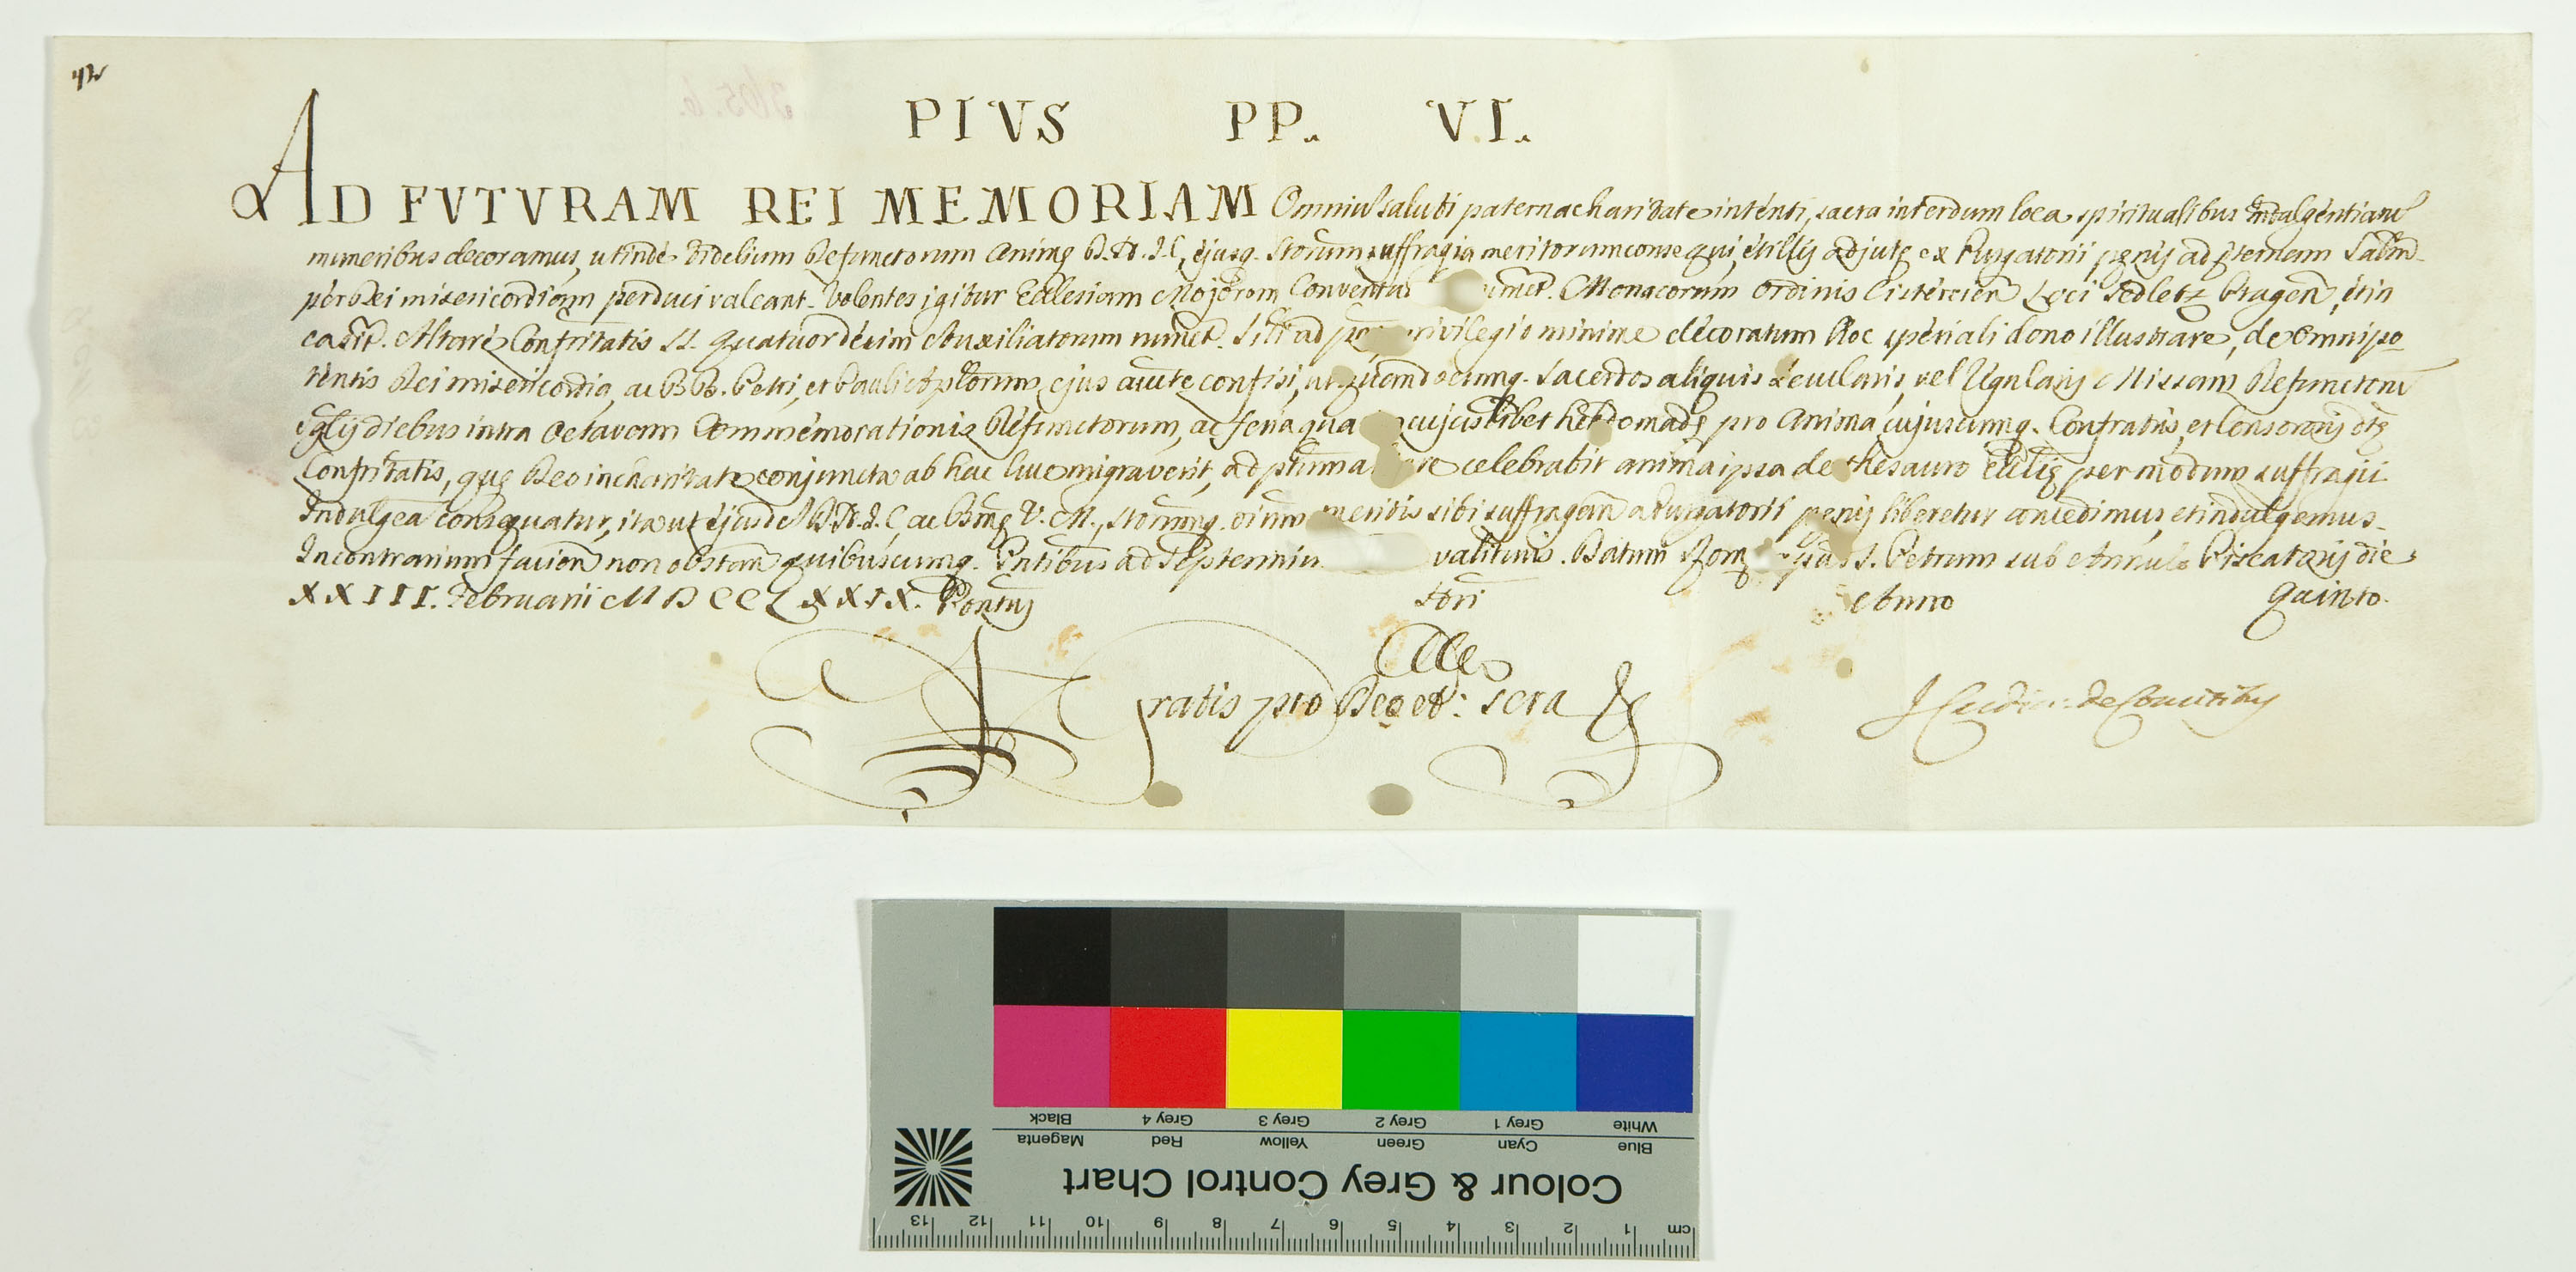 PIVS PP. VI.
AD FVTVRAM REI MEMORIAM Omniu saluti paterna charitate intenti, sacra interdum loca spiritualibus Indulgentiarũ
muneribus decoramus, ut inde Fidelium Defunctorum Animę D. N. J. C. ejusq. Storum suffragia meritorum consequi, et illis adjutę ex Purgatorii pęnis ad ęternam Salut̃
per Dei misericordiam perduci valeant. Volentes igitur Ecclesiam Majorem Conventus Monacorum Ordinis Cistercien Loci Sedletz Pragen, et in
ea Altare Confritatis SS. Quatuordecim Auxiliatorum nuncup. Siti ad privilegio minime decoratum hoc speciali dono illustrare, de Omnipo
tentis Dei misericordia, ac BB. Petri, et Pauli Aplorum ejus aucte confisi, ut quandocumq. Sacerdos aliquis Secularis, vel Rgularis Missam Defunctorũ
sglis diebus intra Octavam Commemorationis Defunctorum, ac feria qua cujuslibet hebdomadę pro Anima cujuscumq. Confratris, et Consororis dtę
Confritatis, quę Deo in charitate conjuncta ab hac luce migraverit, ad pttum celebrabit anima ipsa de thesauro Ecclię per modum suffragii
Indulgea consequatur, ita ut ejusde D. N. J. C. ac Bmę V. M., Storumq. oium meritis sibi suffragan a Purgatorii pęnis liberetur concedimus, et indulgemus.
In contrarium facien non obstan quibuscumq. Pntibus ad Septenniu valituris. Datum Romę S. Petrum sub Annulo Piscatoris die
XXIII. Februarii MDCCLXXIX. Pontus Nri Anno Quinto.
Gratis pro Deo et Scra
J Card. de Comitibus
Colour & Grey Control Chart
Blue Cyan Green Yellow Red Magenta
White Grey 1 Grey 2 Grey 3 Grey 4 Black
cm 1 2 3 4 5 6 7 8 9 10 11 12 13